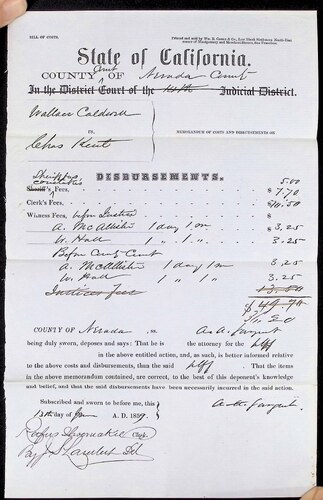 BILL OF COSTS.
Printed and sold by Wm. B. Cooke & Co., Law Blank Publishers,
corner of Montgomery and Merchant Streets, San Francisco.
State of California.
COUNTY Court OF Nevada County
In the District Court of the 14th Judicial District.
Wallace Caldwell
vs.
Chas Kent
MEMORANDUM OF COSTS AND DISBURSEMENTS ON
DISBURSEMENTS.
Sheriff's 5.00
Constable's
Sheriff's Fees, $ 7.70
Clerk's Fees, $ 10.50
Witness Fees, before Justice $
A. McAllister 1 day 1 m $ 3.25
W. Hall 1 " 1 " $ 3.25
Before County Court
A. McAllister 1 day 1 m 3.25
W. Hall 1 " 1 " 3.25
Justices fees 13.50
$ 49.70
COUNTY OF Nevada, ss. A. A. Sargent
being duly sworn, deposes and says: That he is the attorney for the plff
in the above entitled action, and, as such, is better informed relative
to the above costs and disbursements, than the said plff That the items
in the above memorandum contained, are correct, to the best of this deponent's knowledge
and belief, and that the said disbursements have been necessarily incurred in the said action.
Subscribed and sworn to before me, this
day of A. D. 1859
A. A. Sargent
Rufus Shoemaker Clerk
By J. Lambert Dpt